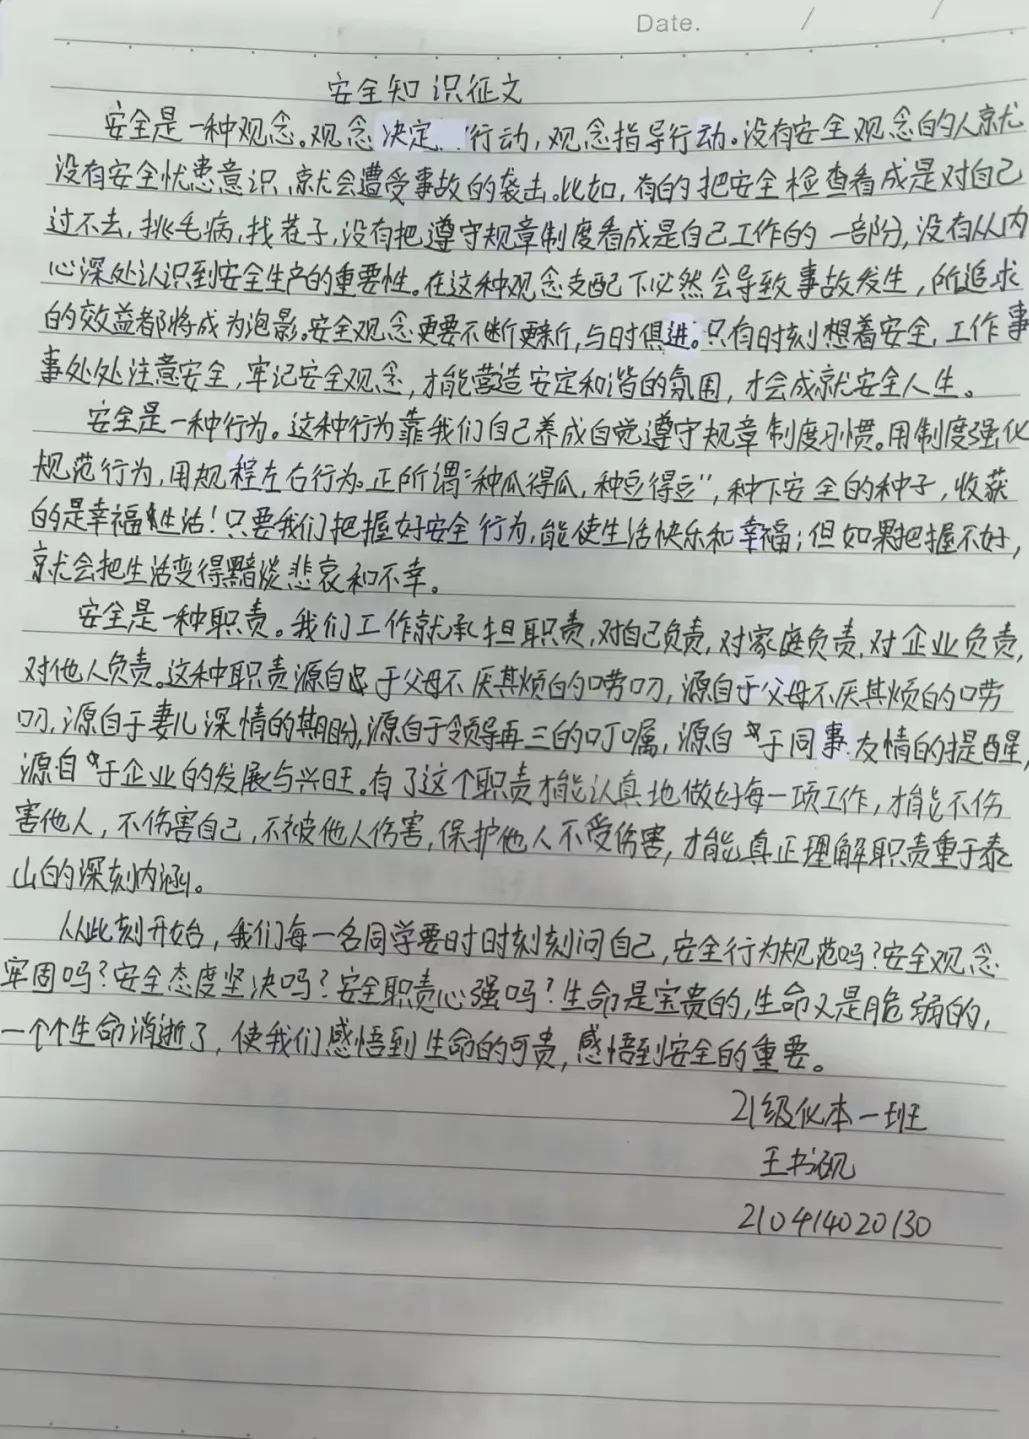 Date. / /
安全知识征文
安全是一种观念。观念决定行动,观念指导行动。没有安全观念的人就
没有安全忧患意识,就会遭受事故的袭击。比如,有的把安全检查看成是对自己
过不去,挑毛病,找茬子,没有把遵守规章制度看成是自己工作的一部分,没有从内
心深处认识到安全生产的重要性。在这种观念支配下必然会导致事故发生,所追求
的效益都将成为泡影。安全观念更要不断更新,与时俱进。只有时刻想着安全,工作事
事处处注意安全,牢记安全观念,才能营造安定和谐的氛围,才会成就安全人生。
安全是一种行为。这种行为靠我们自己养成自觉遵守规章制度习惯。用制度强化
规范行为,用规程左右行为。正所谓“种瓜得瓜,种豆得豆”,种下安全的种子,收获
的是幸福生活!只要我们把握好安全行为,能使生活快乐和幸福;但如果把握不好,
就会把生活变得黯淡悲哀和不幸。
安全是一种职责。我们工作就承担职责,对自己负责,对家庭负责,对企业负责,
对他人负责。这种职责源自于父母不厌其烦的唠叨,源自于父母不厌其烦的唠
叨,源自于妻儿深情的期盼,源自于领导再三的叮嘱,源自于同事友情的提醒,
源自于企业的发展与兴旺。有了这个职责才能认真地做好每一项工作,才能不伤
害他人,不伤害自己,不被他人伤害,保护他人不受伤害,才能真正理解职责重于泰
山的深刻内涵。
从此刻开始,我们每一名同学要时时刻刻问自己,安全行为规范吗?安全观念
牢固吗?安全态度坚决吗?安全职责心强吗?生命是宝贵的,生命又是脆弱的,
一个个生命消逝了,使我们感悟到生命的可贵,感悟到安全的重要。
21级化本一班
王书砚
210414020130